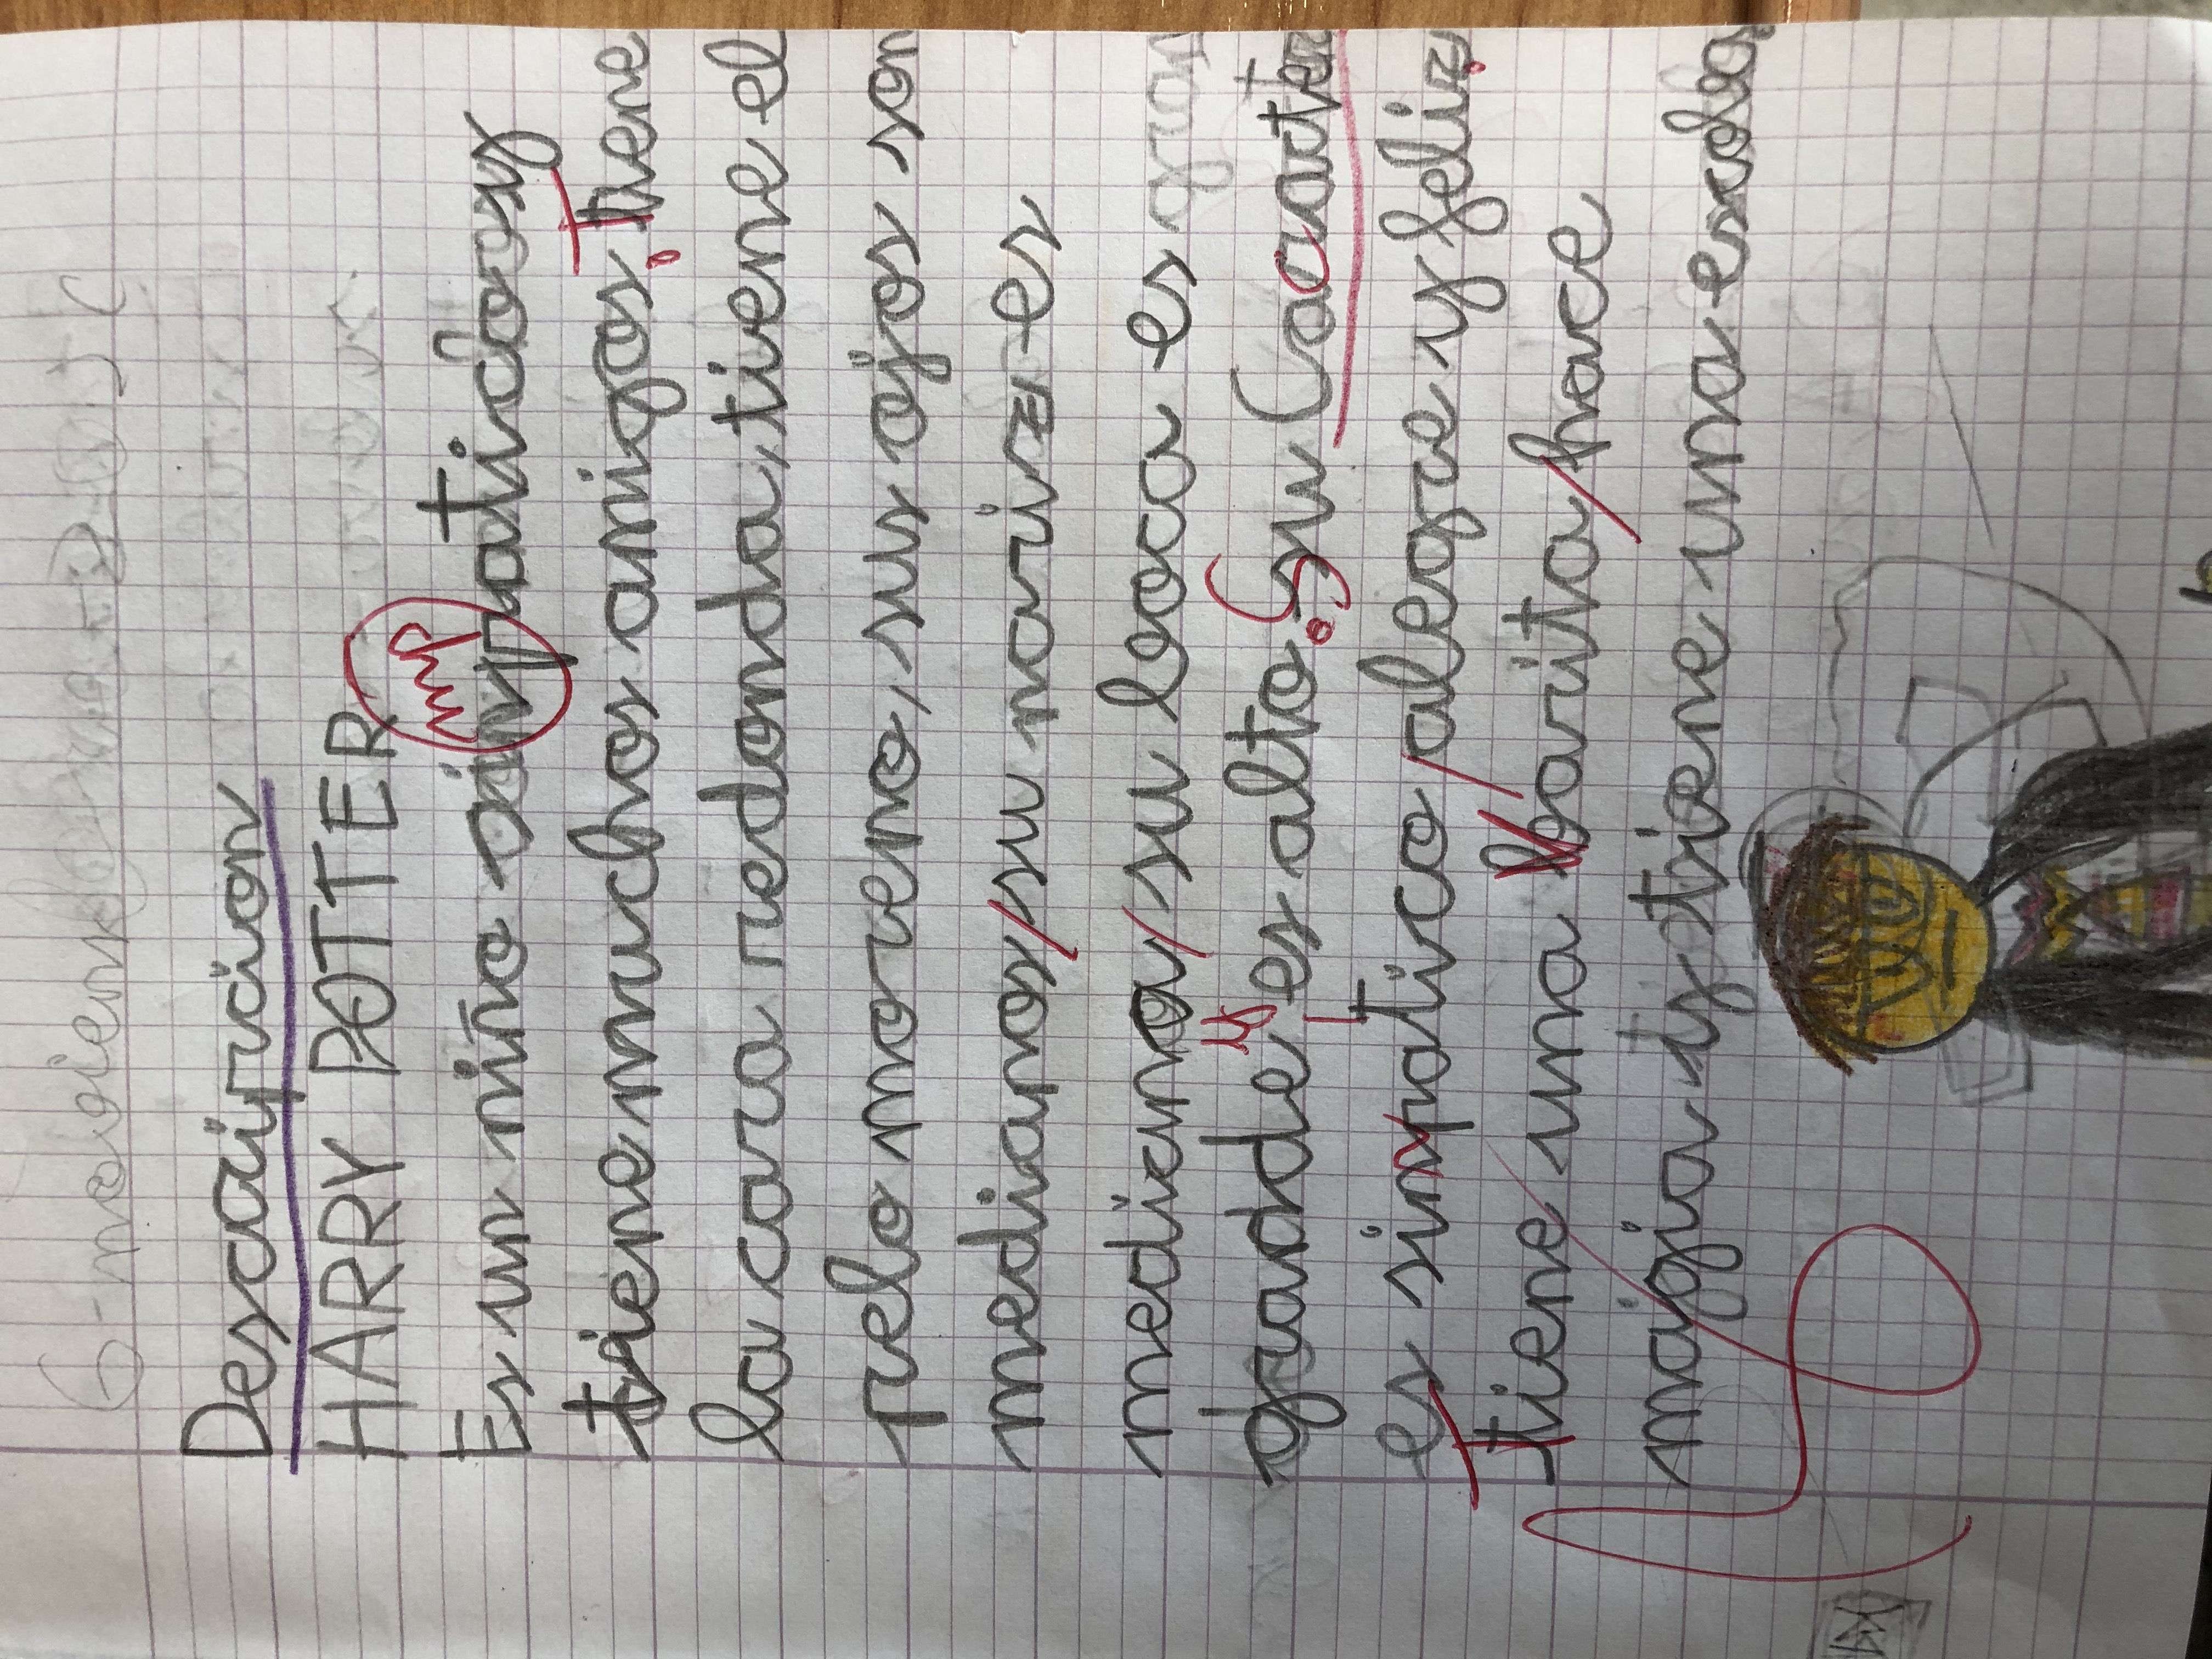 Descripcion
HARRY POTTER
Es un niño simpatico y
tiene muchos amigos. Tiene
la cara redonda, tiene el
pelo moreno, sus ojos son
medianos, su nariz es
mediana, su boca es
grande y es alto. Su Caracter
es simpatico, alegre y feliz.
Tiene una Varita, hace
magia y tiene una escoba